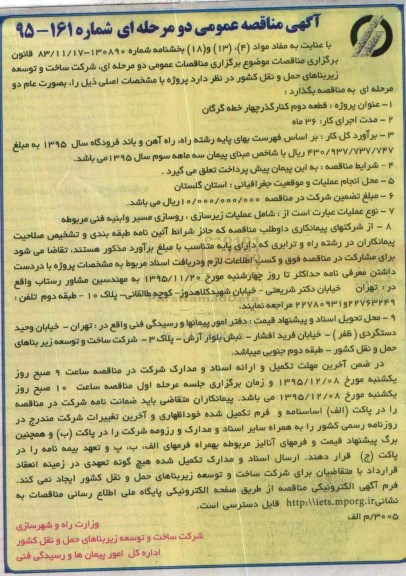 آگهی مناقصه عمومی دو مرحله ای شماره ۱۶۱-۹۵
با عنایت به مفاد مواد (۴)، (۱۳) و(۱۸) بخشنامه شماره ۱۳۰۸۹۰-۸۳/۱۱/۱۷ قانون
برگزاری مناقصات موضوع برگزاری مناقصات عمومی دو مرحله ای، شرکت ساخت و توسعه
زیربناهای حمل و نقل کشور در نظر دارد پروژه با مشخصات اصلی ذیل را، بصورت عام دو
مرحله ای به مناقصه بگذارد :
۱- عنوان پروژه : قطعه دوم کنارگذرچهار خطه گرگان
۲- مدت اجرای کار: ۳۶ ماه
۳- برآورد کل کار : بر اساس فهرست بهای پایه رشته راه، راه آهن و باند فرودگاه سال ۱۳۹۵ به مبلغ
۴۳۰/۹۳۷/۷۳۷/۷۴۷ ریال با شاخص مبنای پیمان سه ماهه سوم سال ۱۳۹۵می باشد.
۴- شرایط مناقصه : به این پیمان پیش پرداخت تعلق می گیرد .
۵- محل انجام عملیات و موقعیت جغرافیائی : استان گلستان
۶- مبلغ تضمین شرکت در مناقصه ۱۰/۰۰۰/۰۰۰/۰۰۰ریال می باشد.
۷- نوع عملیات عبارت است از : شامل عملیات زیرسازی ، روسازی مسیر وابنیه فنی مربوطه
۸ - از شرکتهای پیمانکاری داوطلب مناقصه که حائز شرایط آئین نامه طبقه بندی و تشخیص صلاحیت
پیمانکاران در رشته راه و ترابری که دارای پایه متناسب با مبلغ برآورد مذکور هستند، تقاضا می شود
برای مشارکت در مناقصه فوق و کسب اطلاعات لازم ودریافت اسناد مربوط به مشخصات پروژه با دردست
داشتن معرفی نامه حداکثر تا روز چهارشنبه مورخ ۱۳۹۵/۱۱/۲۰ به مهندسین مشاور رستاب واقع
در : تهران خیابان دکتر شریعتی - خیابان شهیدکلاهدوز- کوچه طالقانی- پلاک ۱۰ - طبقه دوم تلفن :
۲۲۷۶۳۲۴۹و۲۲۷۸۰۹۳۱ مراجعه نمایند.
۹- محل تحویل اسناد و پیشنهاد قیمت : دفتر امور پیمانها و رسیدگی فنی واقع در : تهران - خیابان وحید
دستگردی ( ظفر ) - خیابان فرید افشار - نبش بلوار آرش - پلاک ۳- شرکت ساخت و توسعه زیر بناهای
حمل و نقل کشور - طبقه دوم جنوبی میباشد.
در ضمن آخرین مهلت تکمیل و ارائه اسناد و مدارک شرکت در مناقصه ساعت ۹ صبح روز
یکشنبه مورخ ۱۳۹۵/۱۲/۰۸ و زمان برگزاری جلسه مرحله اول مناقصه ساعت ۱۰ صبح روز
یکشنبه مورخ ۱۳۹۵/۱۲/۰۸ می باشد. پیمانکاران متقاضی باید ضمانت نامه شرکت در مناقصه
را در پاکت (الف) اساسنامه و فرم تکمیل شده خوداظهاری و آخرین تغییرات شرکت مندرج در
روزنامه رسمی کشور را به همراه سایر اسناد و مدارک و رزومه شرکت را در پاکت (ب) و همچنین
برگ پیشنهاد قیمت و فرمهای آنالیز مربوطه بهمراه فرمهای الف، ب، پ و تعهد بیمه نامه را در
پاکت (ج) قرار دهند. ارسال اسناد و مدارک تکمیل شده هیچ گونه تعهدی در زمینه انعقاد
قرارداد با متقاضیان برای شرکت ساخت و توسعه زیربناهای حمل و نقل کشور ایجاد نمی کند.
فرم آگهی الکترونیکی مناقصه از طریق صفحه الکترونیکی پایگاه ملی اطلاع رسانی مناقصات به
نشانی http://iets.mporg.ir قابل دسترسی است.
۳۰۰۵/م الف
وزارت راه و شهرسازی
شرکت ساخت و توسعه زیربناهای حمل و نقل کشور
اداره کل امور پیمان ها و رسیدگی فنی